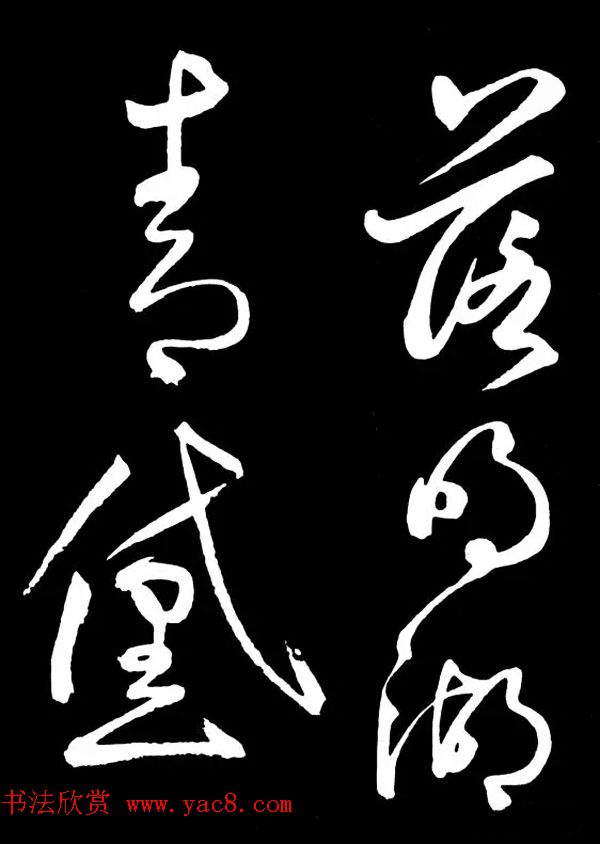 落明湖
青黛
书法欣赏 www.yac8.com